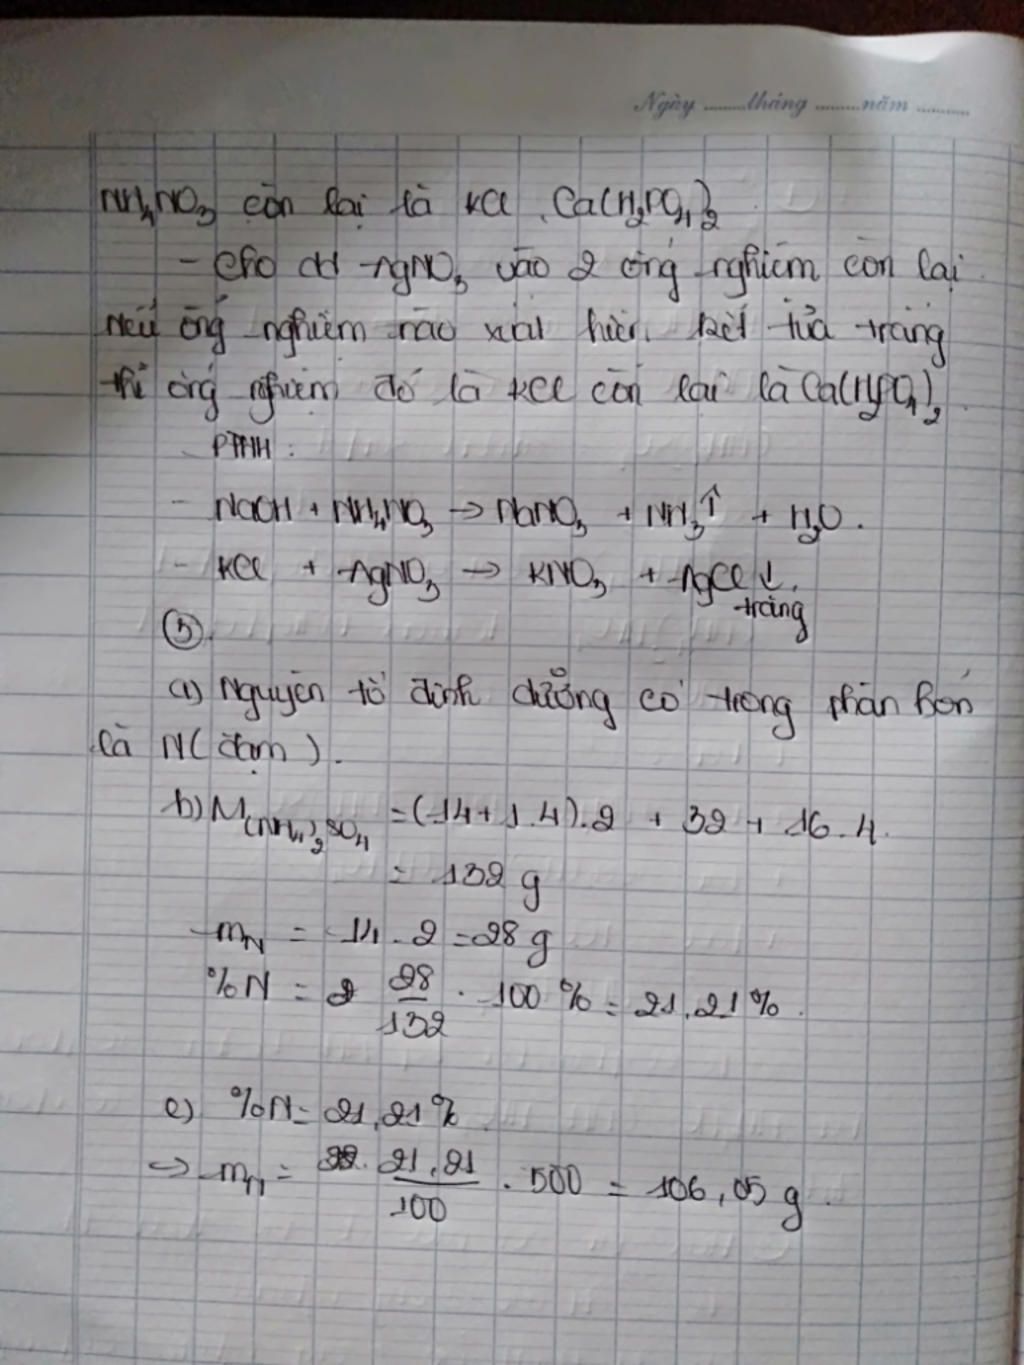 Ngày ........tháng ........năm ..........
NH₄NO₃ còn lại là KCl, Ca(H₂PO₄)₂
- Cho dd AgNO₃ vào 2 ống nghiệm còn lại
Nếu ống nghiệm nào xuất hiện kết tủa trắng
thì ống nghiệm đó là KCl còn lại là Ca(H₂PO₄)₂
PTHH :
- NaOH + NH₄NO₃ → NaNO₃ + NH₃↑ + H₂O.
- KCl + AgNO₃ → KNO₃ + AgCl ↓.
trắng
③
a) Nguyên tố dinh dưỡng có trong phân bón
là N (đạm).
b) M(NH₄)₂SO₄ = (14+1.4).2 + 32 + 16.4.
= 132 g
mN = 14.2 = 28 g
%N = 28/132 . 100 % = 21,21 %.
c) %N = 21,21 %
→ mN = 21,21/100 . 500 = 106,05 g.